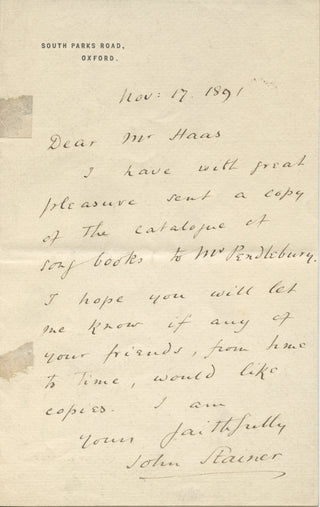 SOUTH PARKS ROAD,
OXFORD.
Nov: 17. 1891
Dear Mr Haas
I have with great
pleasure sent a copy
of the catalogue of
song books to Mr Pendlebury.
I hope you will let
me know if any of
your friends, from time
to time, would like
copies. I am
yours faithfully
John Stainer